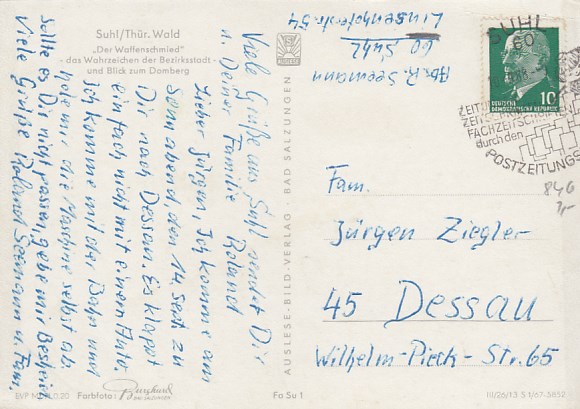 Suhl/Thür. Wald
„Der Waffenschmied"
- das Wahrzeichen der Bezirksstadt -
und Blick zum Domberg
Viele Grüße aus Suhl sendet Dir
u. Deiner Familie Roland
Lieber Jürgen, Ich komme am
Sonnabend den 14. Sept. zu
Dir nach Dessau. Es klappt
einfach nicht mit einem Auto.
Ich komme mit der Bahn und
hole mir die Maschine selbst ab.
Sollte es Dir nicht passen, gebe mir Bescheid
Viele Grüße Roland Seemann u. Fam.
EVP MDN 0,20
Farbfoto:
Fa Su 1
AUSLESE-BILD-VERLAG · BAD SALZUNGEN
Abs. R. Seemann
60 Suhl
Linsenhoferstr. 54
SUHL
60
ZEITUNGEN
FACHZEITSCHRIFTEN
durch den
POSTZEITUNGS
DEUTSCHE
DEMOKRATISCHE REPUBLIK
10
846
Fam.
Jürgen Ziegler
45 Dessau
Wilhelm-Pieck-Str. 65
III/26/13 S 1/67-3852